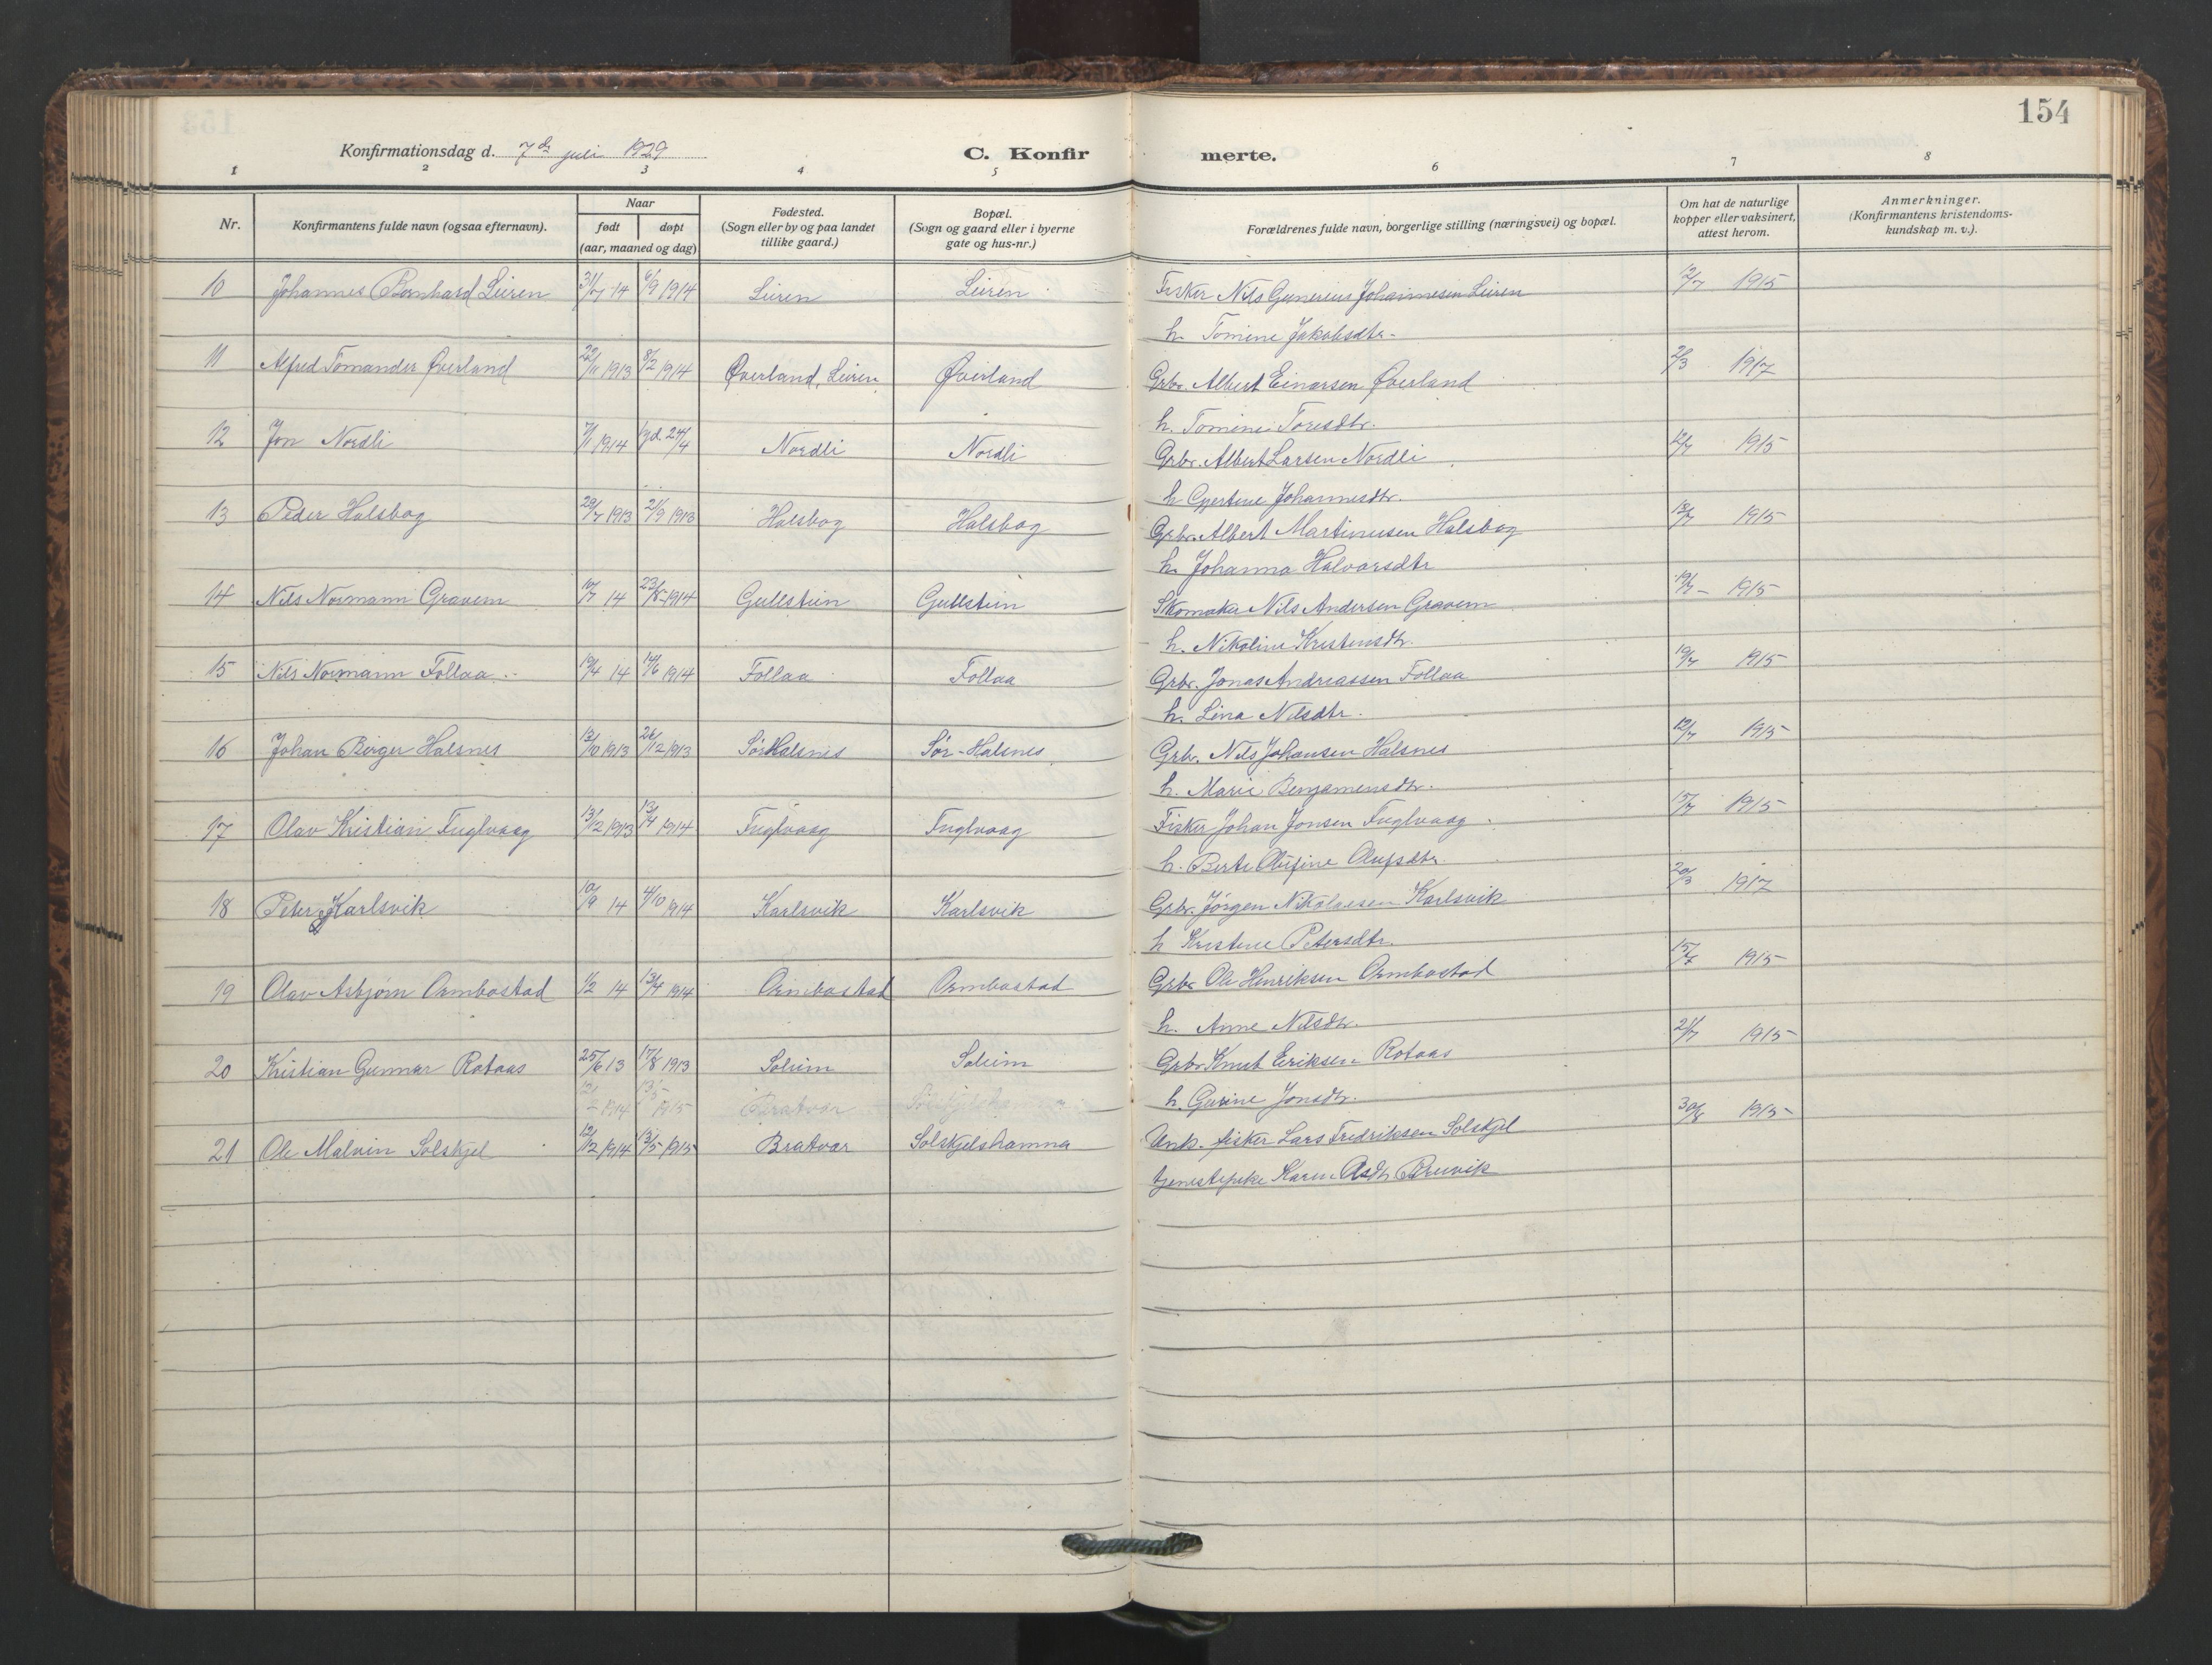 154
Konfirmationsdag d. 7de juli 1929
C. Konfirmerte.
1 2 3 4 5 6 7 8
Nr.
Konfirmantens fulde navn (ogsaa efternavn).
Naar
født døpt
(aar, maaned og dag)
Fødested.
(Sogn eller by og paa landet
tillike gaard.)
Bopæl.
(Sogn og gaard eller i byerne
gate og hus-nr.)
Forældrenes fulde navn, borgerlige stilling (næringsvei) og bopæl.
Om hat de naturlige
kopper eller vaksinert,
attest herom.
Anmerkninger.
(Konfirmantens kristendoms-
kundskap m. v.).
10 Johannes Bernhard Leiren 31/7 14 6/9 1914 Leiren Leiren Fisker Nils Gunerius Johannesen Leiren 12/7 1915
h. Tomine Jakobsdtr.
11 Alfred Tomander Øverland 22/11 1913 8/2 1914 Øverland, Leiren Øverland Grbr. Albert Einarsen Øverland 2/3 1917
h. Tomine Toresdtr.
12 Jon Nordli 7/11 1914 hjd. 24/4 Nordli Nordli Grbr. Albert Larsen Nordli 12/7 1915
h Gjertine Johannesdtr.
13 Peder Halsbog 29/7 1913 21/9 1913 Halsbog Halsbog Grbr. Albert Martinusen Halsbog 13/7 1915
h. Johanna Halvorsdtr
14 Nils Normann Gravem 10/7 14 23/8 1914 Gullstein Gullstein Skomaker Nils Andersen Gravem 19/7 - 1915
h. Nikoline Kristensdtr.
15 Nils Normann Follaa 19/4 14 14/6 1914 Follaa Follaa Grbr. Jonas Andreassen Follaa 19/7 1915
h. Lina Nilsdtr.
16 Johan Birger Halsnes 13/10 1913 26/12 1913 Sør Halsnes Sør-Halsnes Grbr. Nils Johansen Halsnes 12/7 1915
h. Marie Benjamensdtr.
17 Olav Kristian Fuglvaag 13/12 1913 13/4 1914 Fuglvaag Fuglvaag Fisker Johan Jonsen Fuglvaag 15/7 1915
h. Berte Olufine Olufsdtr.
18 Peter Karlsvik 10/9 14 4/10 1914 Karlsvik Karlsvik Grbr. Jørgen Nikolaisen Karlsvik 20/3 1917
h Kristine Petersdtr.
19 Olav Asbjørn Ormbostad 1/2 14 13/4 1914 Ormbostad Ormbostad Grbr Ole Henriksen Ormbostad 15/7 1915
h. Anne Nilsdtr.
20 Kristian Gunnar Rotaas 25/6 13 17/8 1913 Soleim Soleim Grbr Knut Eriksen Rotaas 21/7 1915
h. Gurine Jonsdtr.
Bratvær
21 Ole Malvin Solskjel 12/12 1914 13/5 1915 Bratvær Solskjelshamna Unk. fisker Lars Fredriksen Solskjel 30/8 1915
tjenestepike Karen Asdtr Bruvik